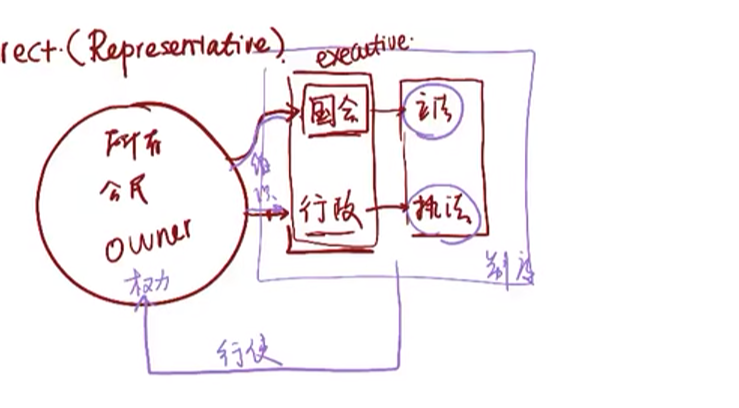 rect.(Representative).
executive.
国会
立法
所有
公民
owner
权力
组织
行政
执法
制度
行使